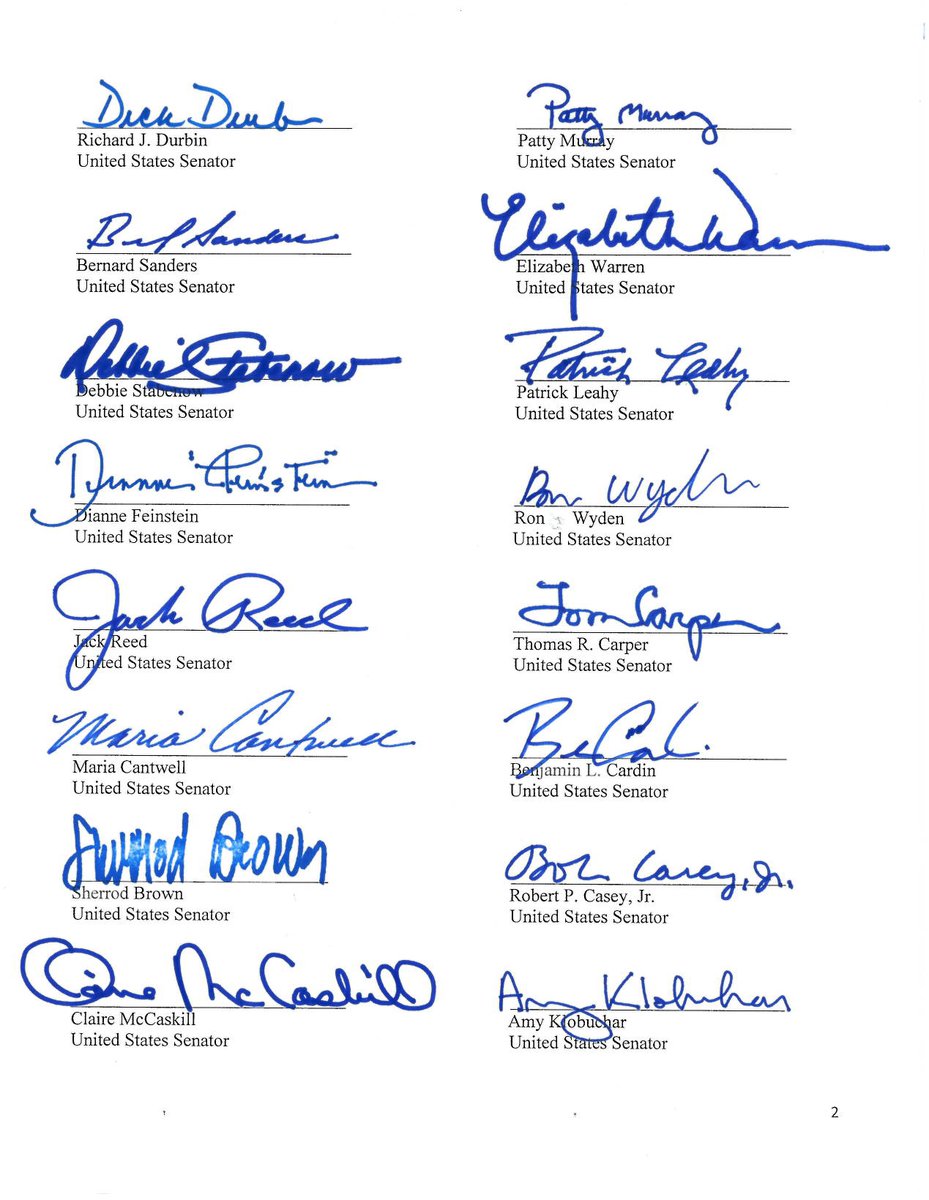 Dick Durbin
Richard J. Durbin
United States Senator
Patty Murray
Patty Murray
United States Senator
Sanders
Bernard Sanders
United States Senator
Elizabeth Warren
Elizabeth Warren
United States Senator
Debbie Stabenow
Debbie Stabenow
United States Senator
Patrick Leahy
Patrick Leahy
United States Senator
Dianne Feinstein
Dianne Feinstein
United States Senator
Ron Wyden
Ron Wyden
United States Senator
Jack Reed
Jack Reed
United States Senator
Tom Carper
Thomas R. Carper
United States Senator
Maria Cantwell
Maria Cantwell
United States Senator
Benjamin L. Cardin
United States Senator
Sherrod Brown
Sherrod Brown
United States Senator
Bob Casey, Jr.
Robert P. Casey, Jr.
United States Senator
Claire McCaskill
Claire McCaskill
United States Senator
Amy Klobuchar
Amy Klobuchar
United States Senator
2